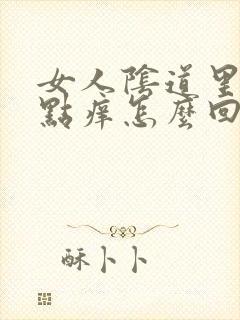 女人陰道里
點痒怎麼回
酥卜卜